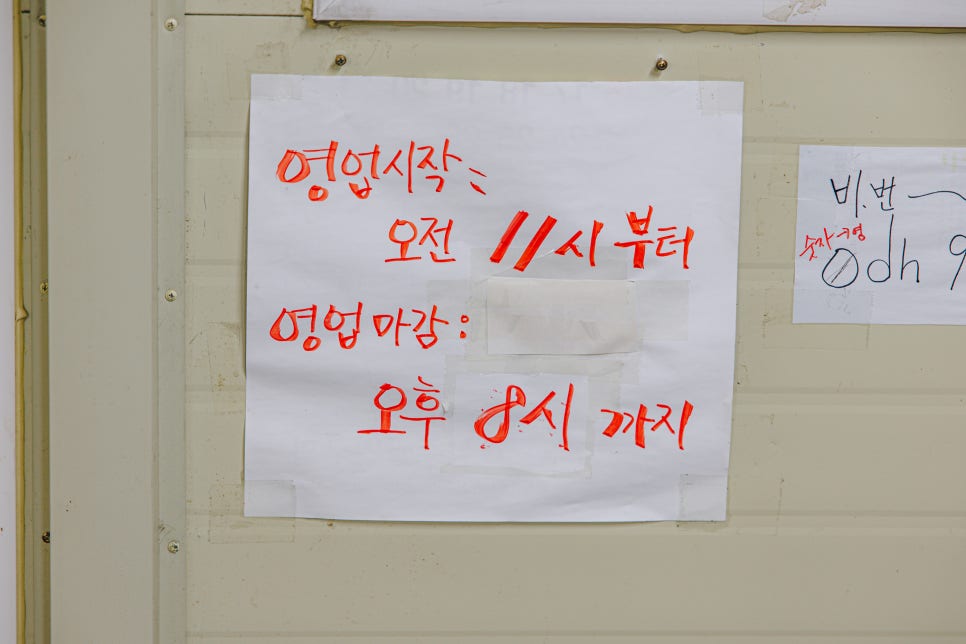 영업시작:
오전 11시 부터
영업마감:
오후 8시 까지
비.번
숫자→영
0dh 9